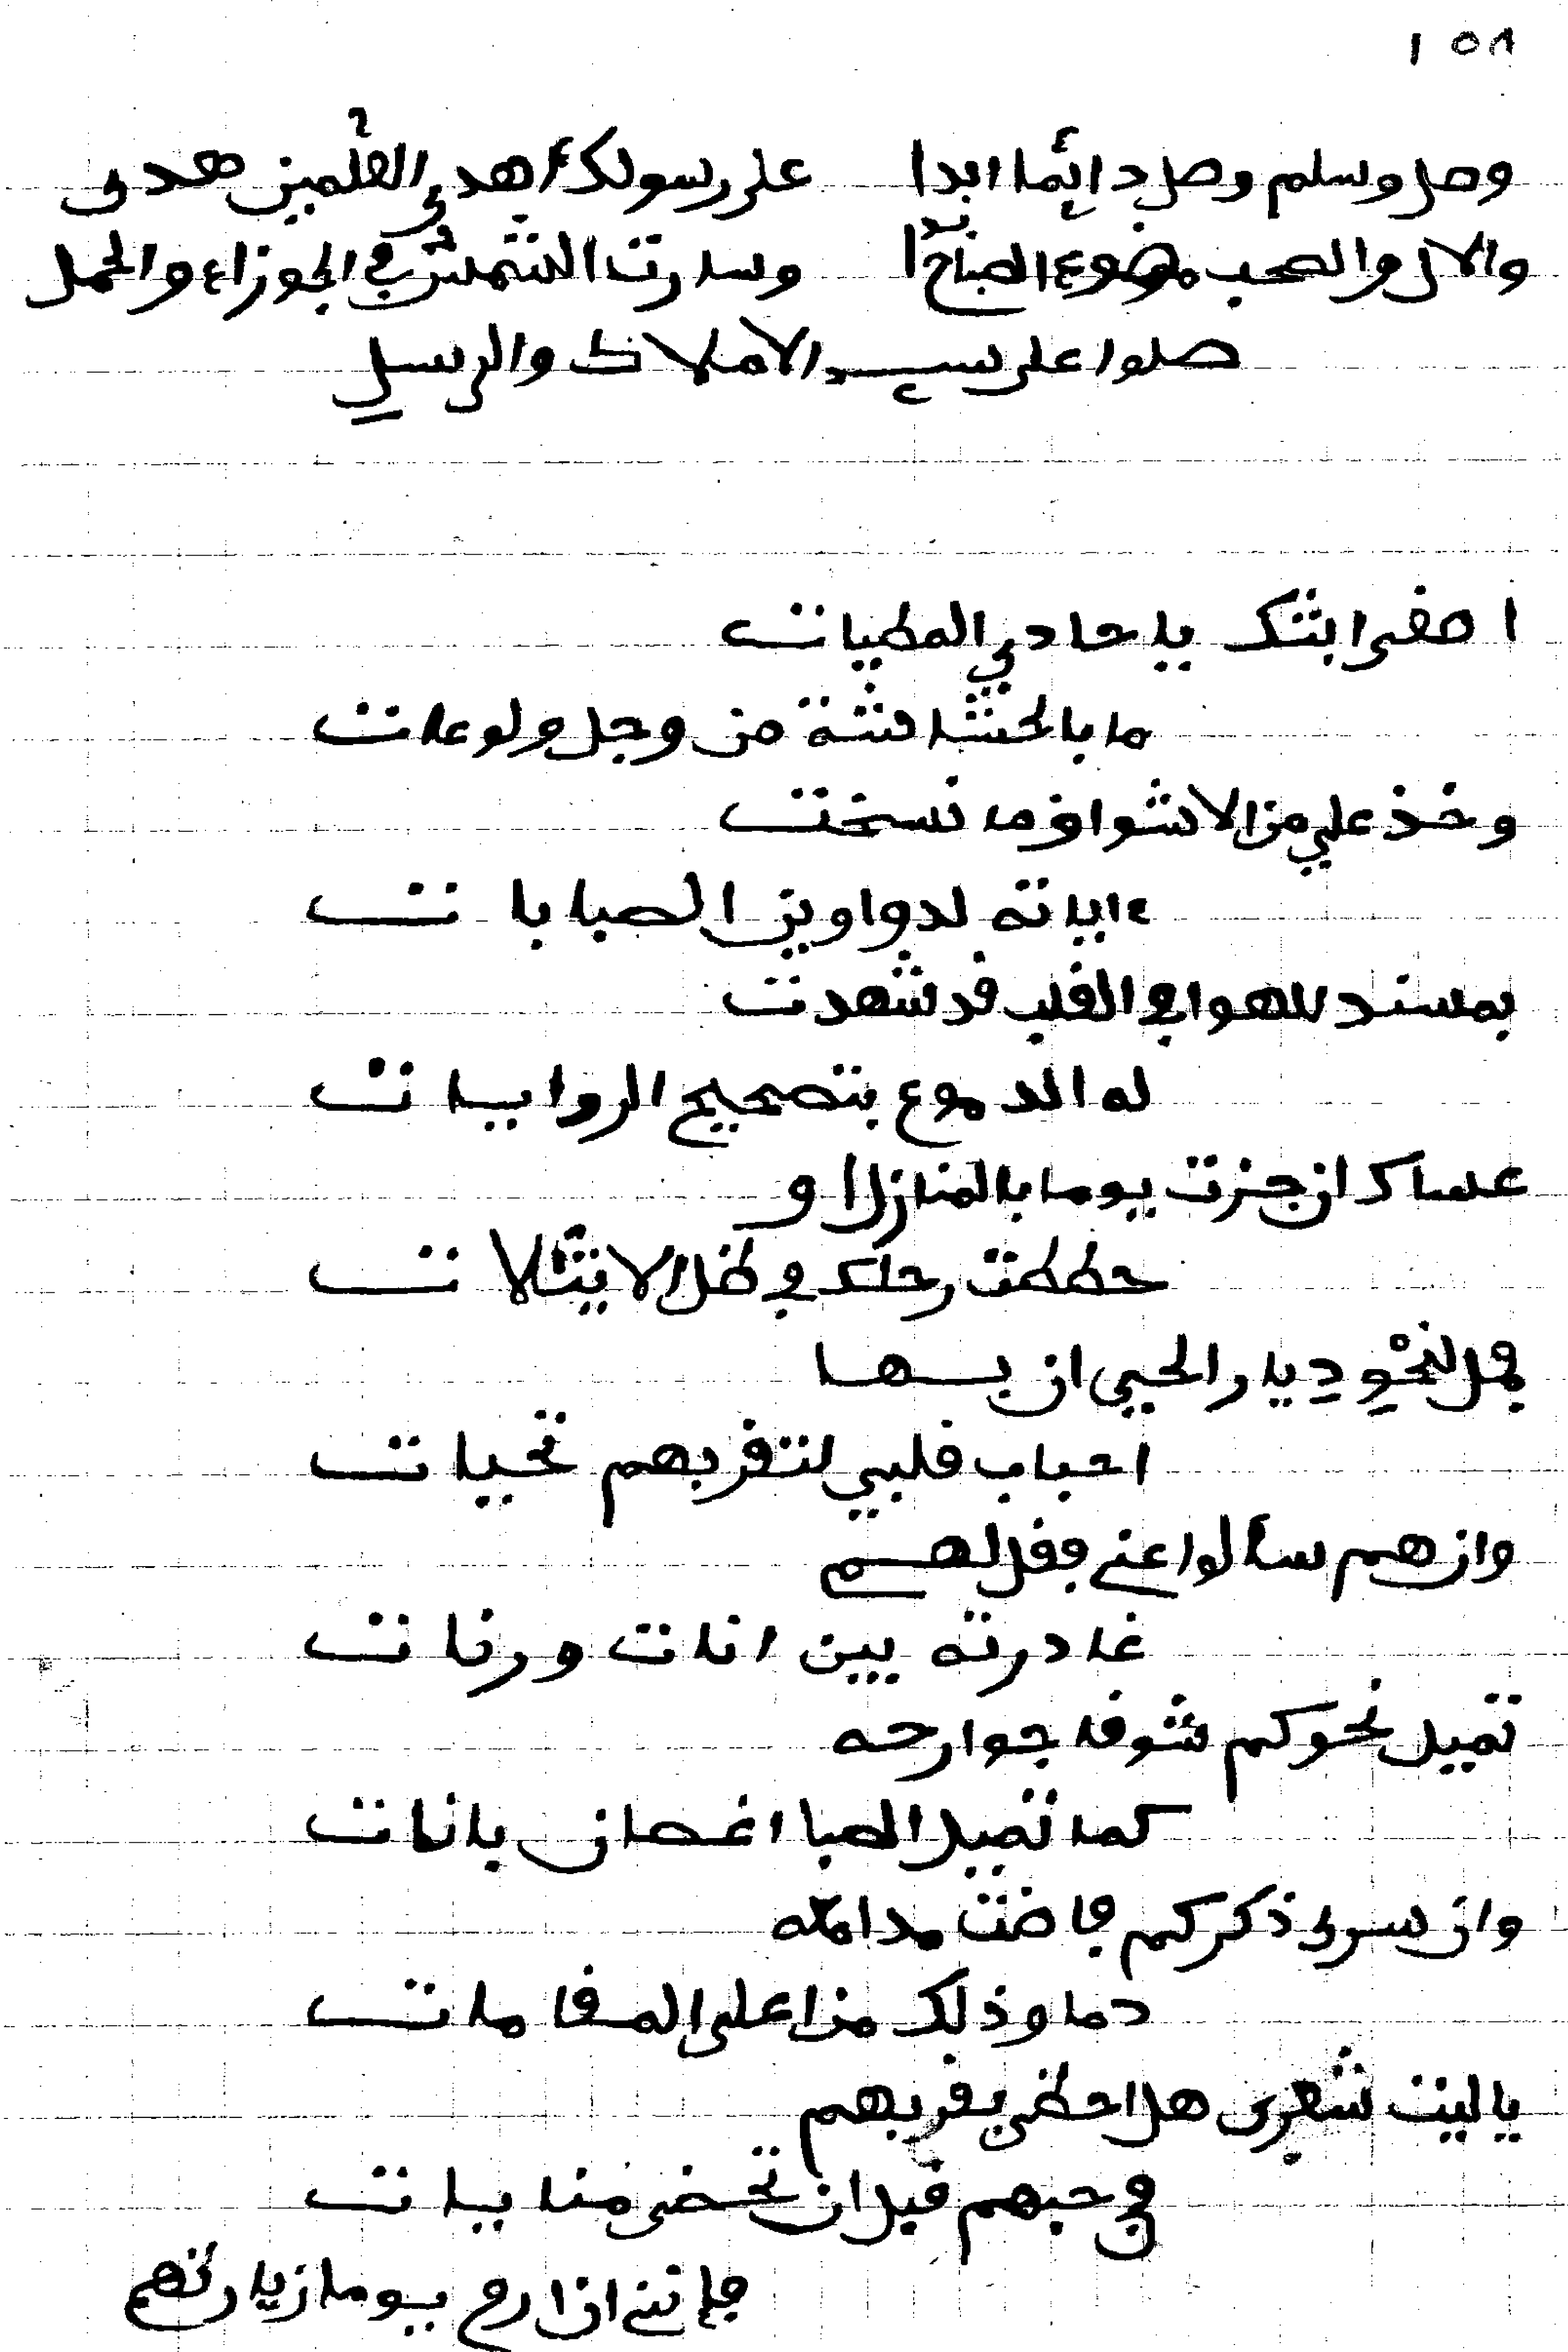 ١٥٨
وصل وسلم وصل دائما ابدا على رسولك أهدى العلمين هدى
والال والصحب ما ضوء الصباح بدا وسارت الشمس في الجوزاء والحمل
صلوا على سيد الاملاك والرسل
اصغى ابثك يا حادي المطيات
ما بالحشا من وجل ولوعات
وخذ علي من الاشواق ما نسخت
ءاياته لدواوين الصبابات
بمسند للهوا في القلب قد شهدت
له الدموع بتصحيح الروايات
عساك ان جزت يوما بالمنازل او
حططت رحلك في ظل الاثيلات
فمل لنحو ديار الحيي ان بها
احباب قلبي لتقربهم تحيات
وان هم سألوا عني فقل لهم
غادرته بين انات ورنات
تميل نحوكم شوقا جوارحه
كما تميل الصبا اغصان بانات
وان سرى ذكركم فاضت مدامعه
دما وذلك من اعلى المقامات
يا ليت شعرى هل احظى بقربهم
في حبهم قبل ان تحضى منايات
فإنني ان ارم يوما زيارتهم